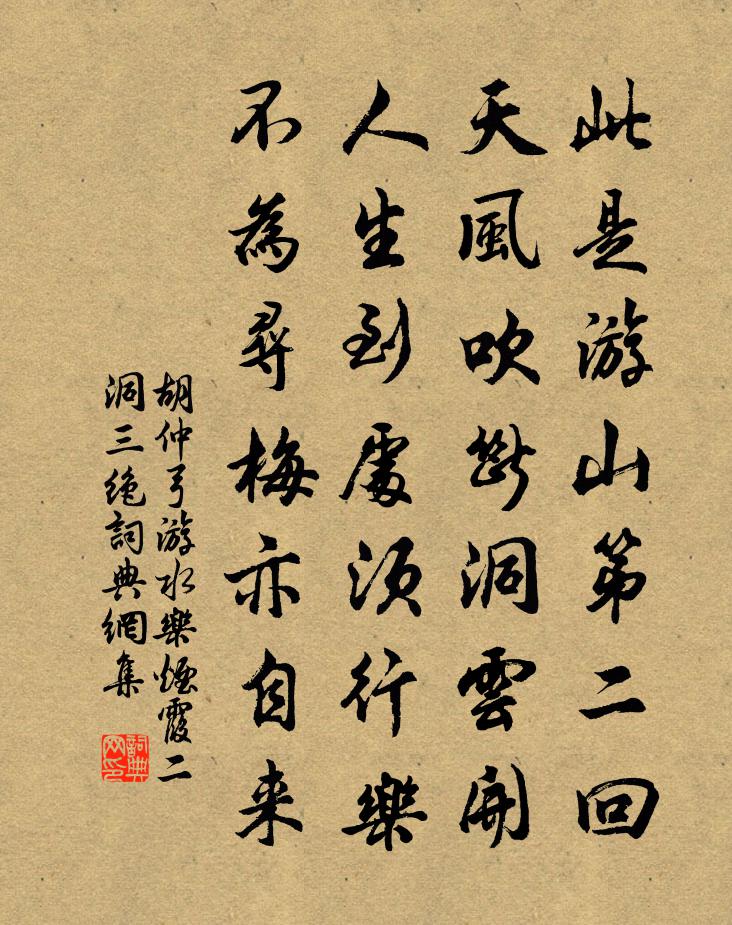 此是游山第二回
天風吹斷洞雲開
人生到處須行樂
不為尋梅亦自来
胡仲弓游水樂煙霞二
洞三絶詞典網集
詞典
网印